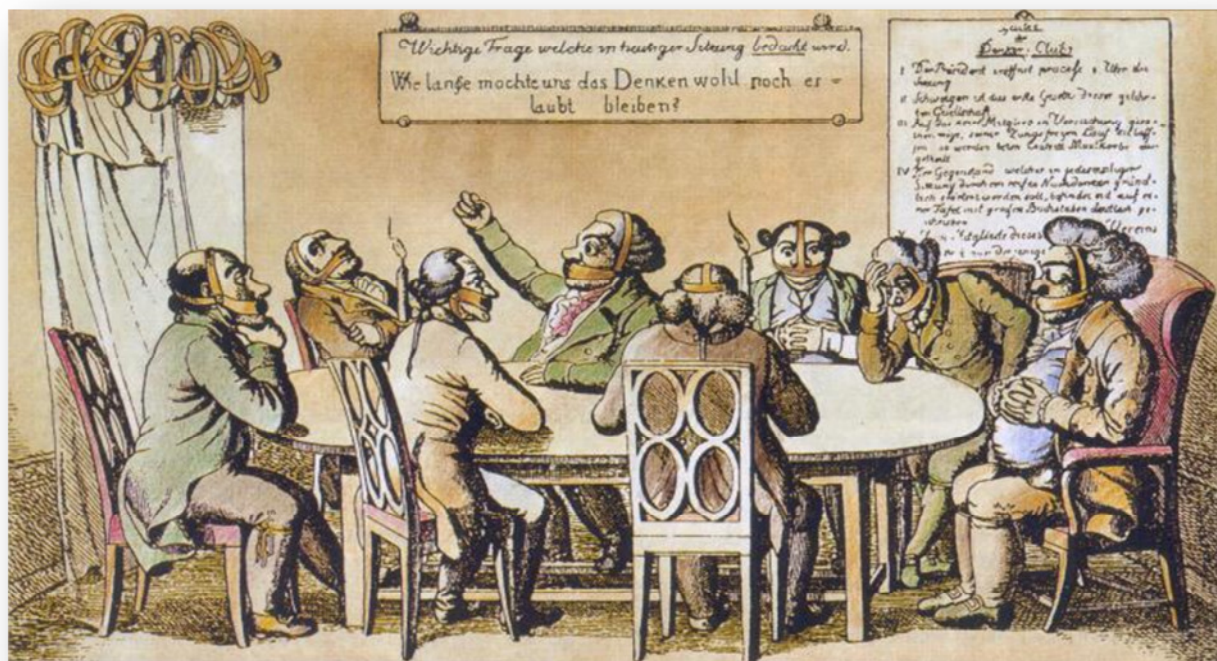 Wichtige Frage welche in heutiger Sitzung bedacht wird.
Wie lange möchte uns das Denken wohl noch er=
laubt bleiben?
der
Denker-Clubs
I Der Präsident eröffnet präcise 8 Uhr die
Sitzung
II Schweigen ist das erste Gesetz dieser gelehr-
ten Gesellschaft
III Auf das kein Mitglied in Versuchung gera-
then möge, seiner Zunge freyen Lauf zu lass-
sen so werden beim Eintritt Maulkörbe aus
getheilt
IV Der Gegenstand welcher in jedesmaliger
Sitzung durch ein reifes Nachdenken gründ-
lich erörtert werden soll, befindet sich auf ei
ner Tafel mit großen Buchstaben deutlich ge-
schrieben
Mitglieder dieses Vereins